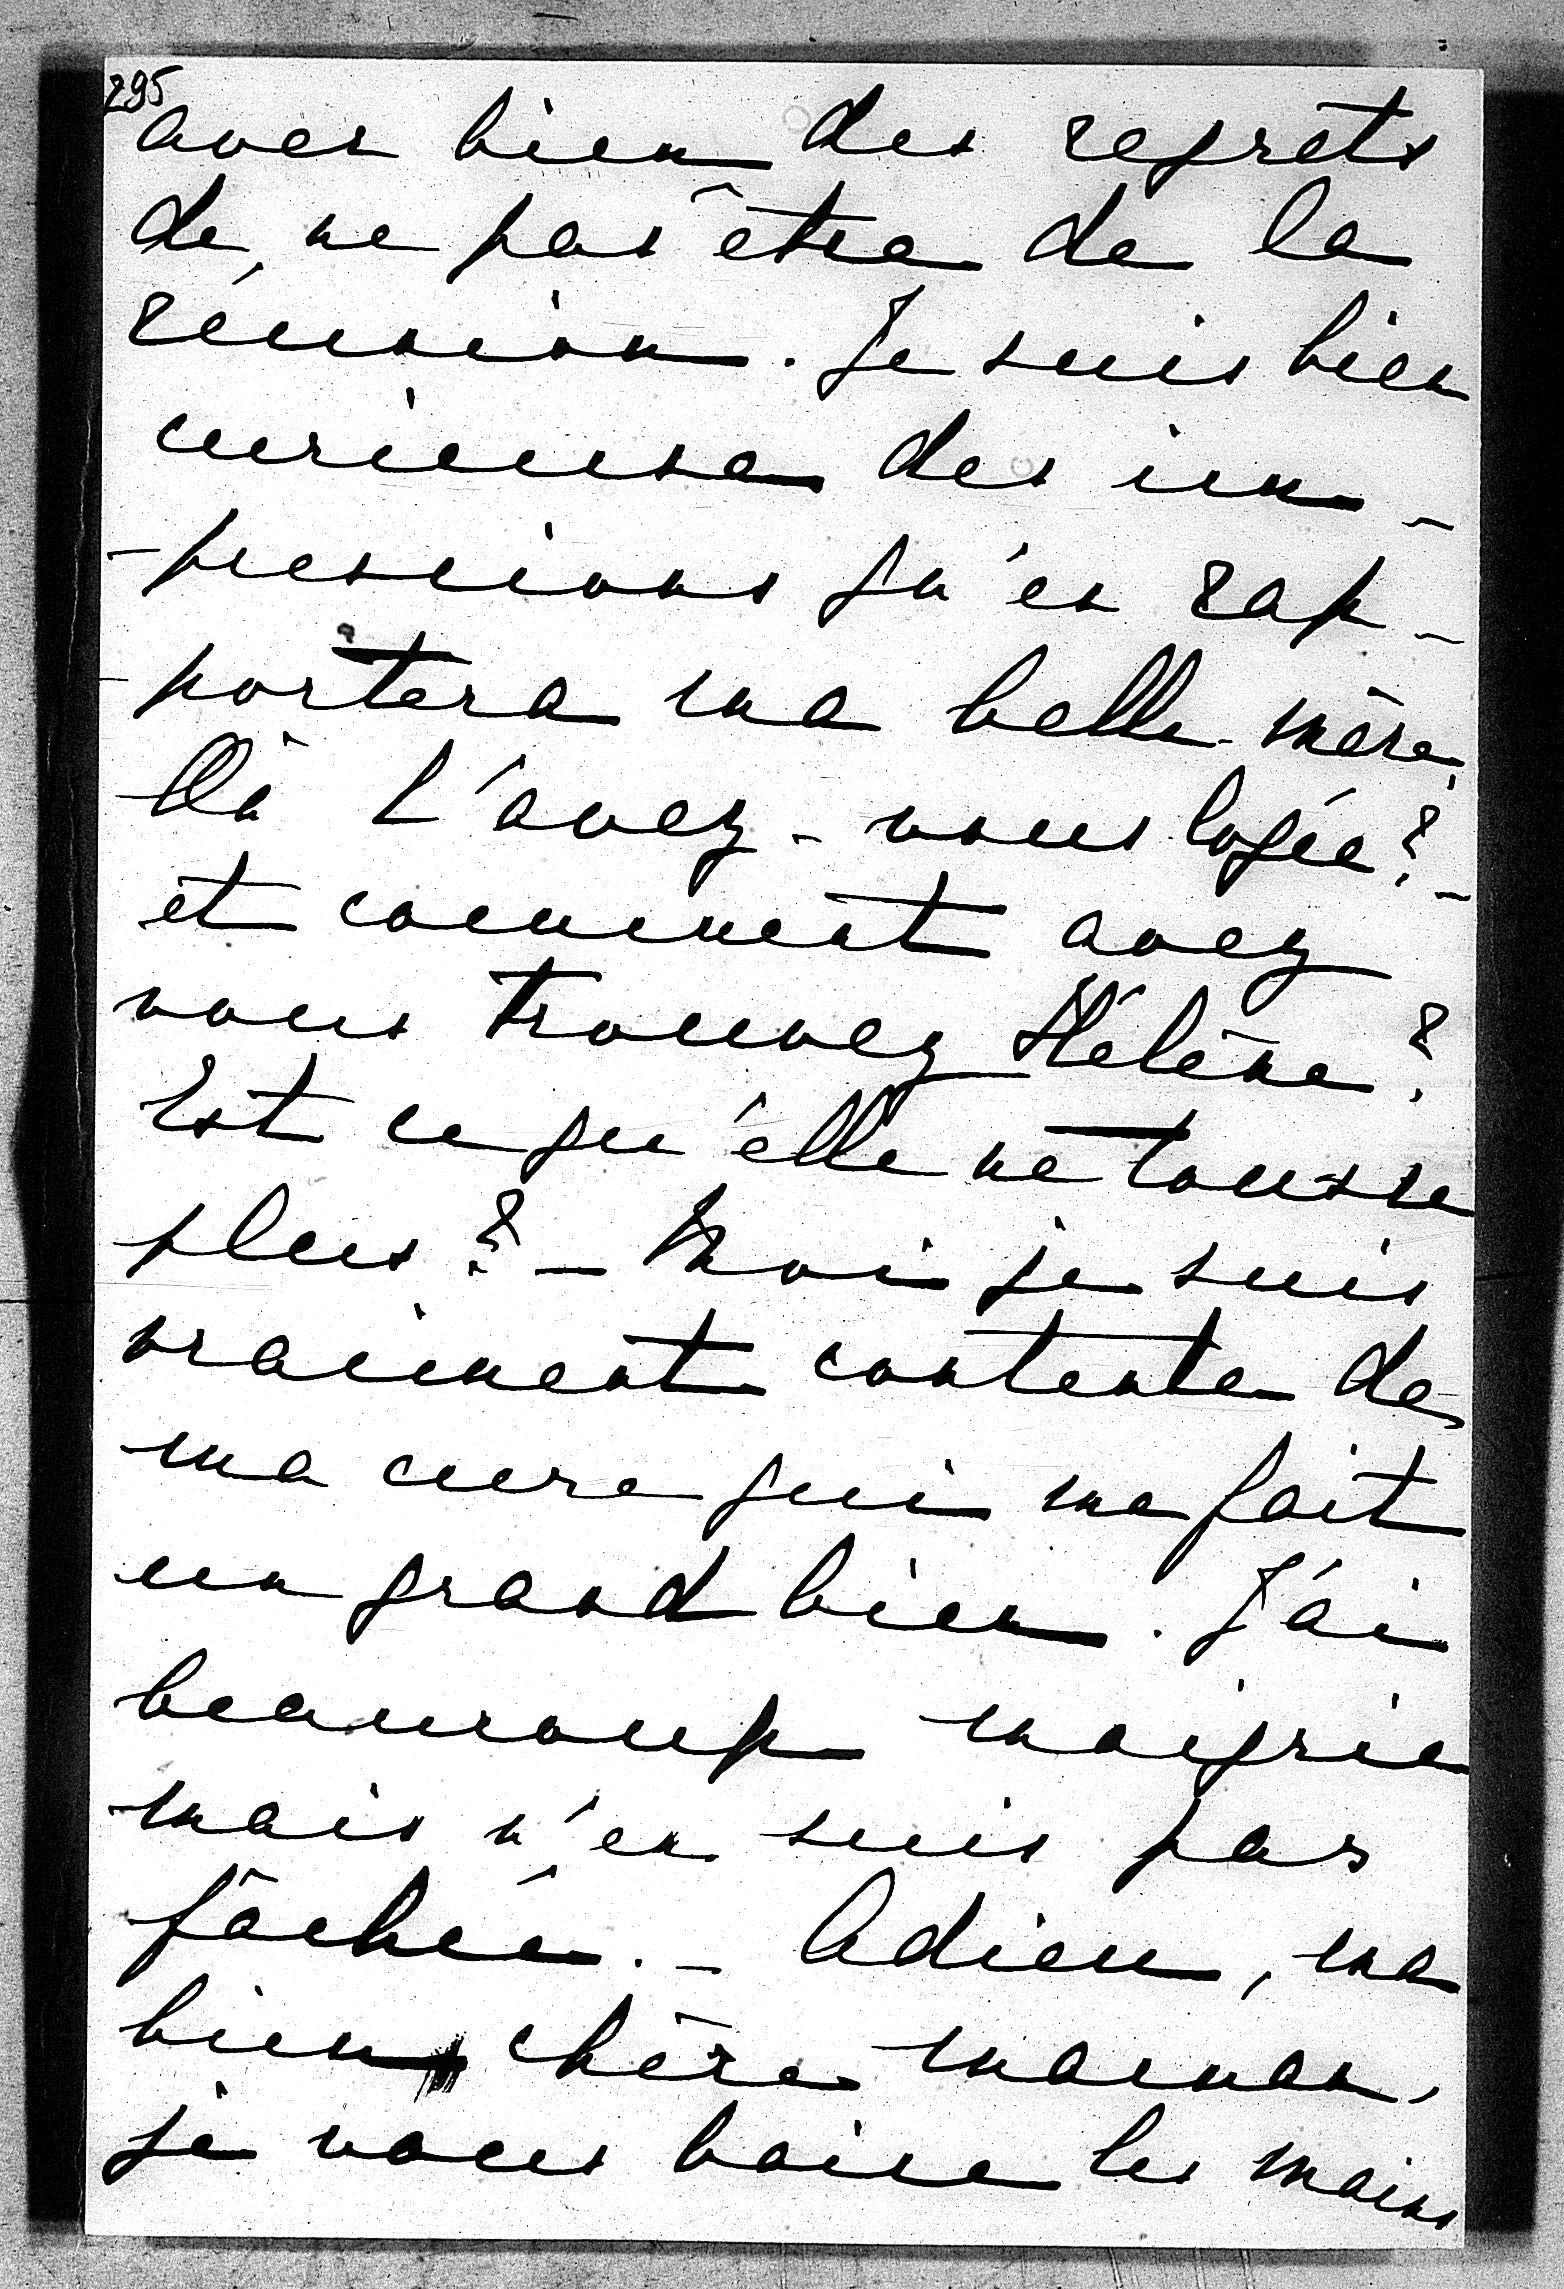 295
avez bien des regrets
de ne pas être de la
réunion. Je suis bien
curieuse des im-
-pressions qu'en rap-
-portera ma belle-mère.
Où l'avez-vous logée? -
et comment avez
vous trouvez Hélène?
Est ce qu'elle ne tousse
plus? - Moi je suis
vraiment contente de
ma cure qui me fait
un grand bien. J'ai
beaucoup maigrie
mais n'en suis pas
fâchée. - Adieu, ma
bien chère maman,
je vous baise les mains